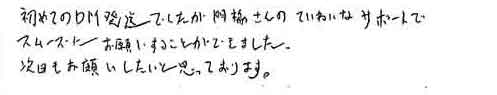 初めてのDM発送でしたが 門脇さんの ていねいな サポートで
スムーズに お願いすることができました。
次回もお願いしたいと思っております。